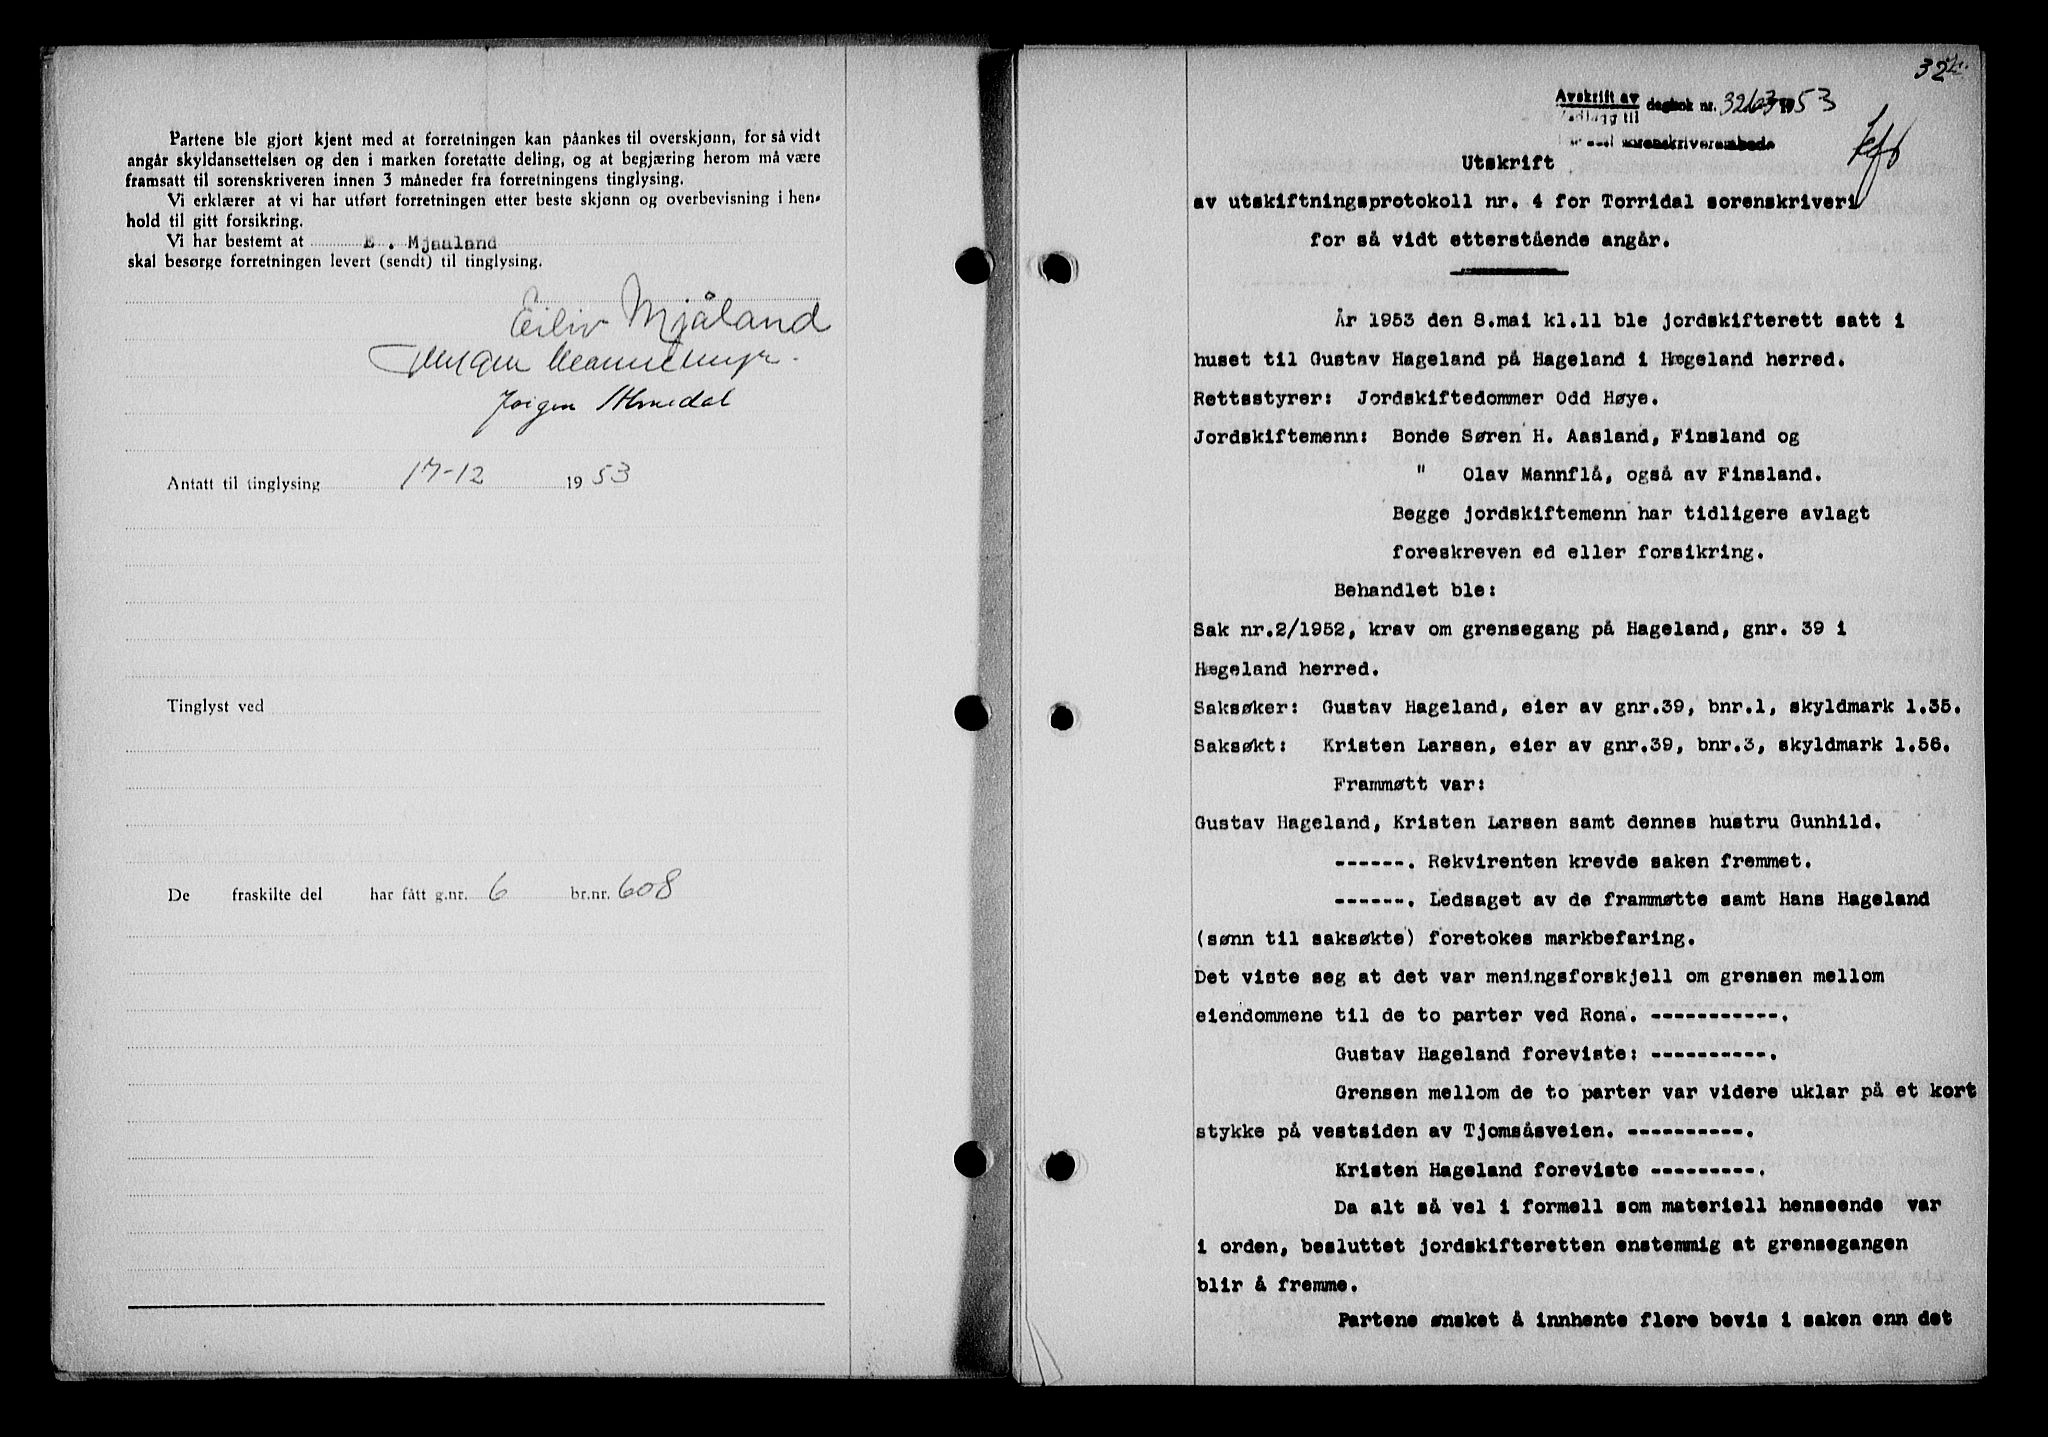 Partene ble gjort kjent med at forretningen kan påankes til overskjønn, for så vidt
angår skyldansettelsen og den i marken foretatte deling, og at begjæring herom må være
framsatt til sorenskriveren innen 3 måneder fra forretningens tinglysing.
Vi erklærer at vi har utført forretningen etter beste skjønn og overbevisning i hen-
hold til gitt forsikring.
Vi har bestemt at E. Mjaaland
skal besørge forretningen levert (sendt) til tinglysing.
Eiliv Mjåland
Jørgen
Antatt til tinglysing 17-12 1953
Tinglyst ved
De fraskilte del har fått g.nr. 6 br.nr. 608
32
Avskrift av dagbok nr. 3263 1953
Vedlegg til
sorenskriverembede
Utskrift
av utskiftningsprotokoll nr. 4 for Torridal sorenskriveri
for så vidt etterstående angår.
År 1953 den 8.mai kl.11 ble jordskifterett satt i
huset til Gustav Hageland på Hageland i Hægeland herred.
Rettsstyrer: Jordskiftedommer Odd Høye.
Jordskiftemenn: Bonde Søren H. Aasland, Finsland og
" Olav Mannflå, også av Finsland.
Begge jordskiftemenn har tidligere avlagt
foreskreven ed eller forsikring.
Behandlet ble:
Sak nr.2/1952, krav om grensegang på Hageland, gnr. 39 i
Hægeland herred.
Saksøker: Gustav Hageland, eier av gnr.39, bnr.1, skyldmark 1.35.
Saksøkt: Kristen Larsen, eier av gnr.39, bnr.3, skyldmark 1.56.
Frammøtt var:
Gustav Hageland, Kristen Larsen samt dennes hustru Gunhild.
------. Rekvirenten krevde saken fremmet.
------. Ledsaget av de frammøtte samt Hans Hageland
(sønn til saksøkte) foretokes markbefaring.
Det viste seg at det var meningsforskjell om grensen mellom
eiendommene til de to parter ved Rona. -----------.
Gustav Hageland foreviste: ----------.
Grensen mellom de to parter var videre uklar på et kort
stykke på vestsiden av Tjomsåsveien. ----------.
Kristen Hageland foreviste ---------.
Da alt så vel i formell som materiell henseende var
i orden, besluttet jordskifteretten enstemmig at grensegangen
blir å fremme.
Partene ønsket å innhente flere bevis i saken enn det